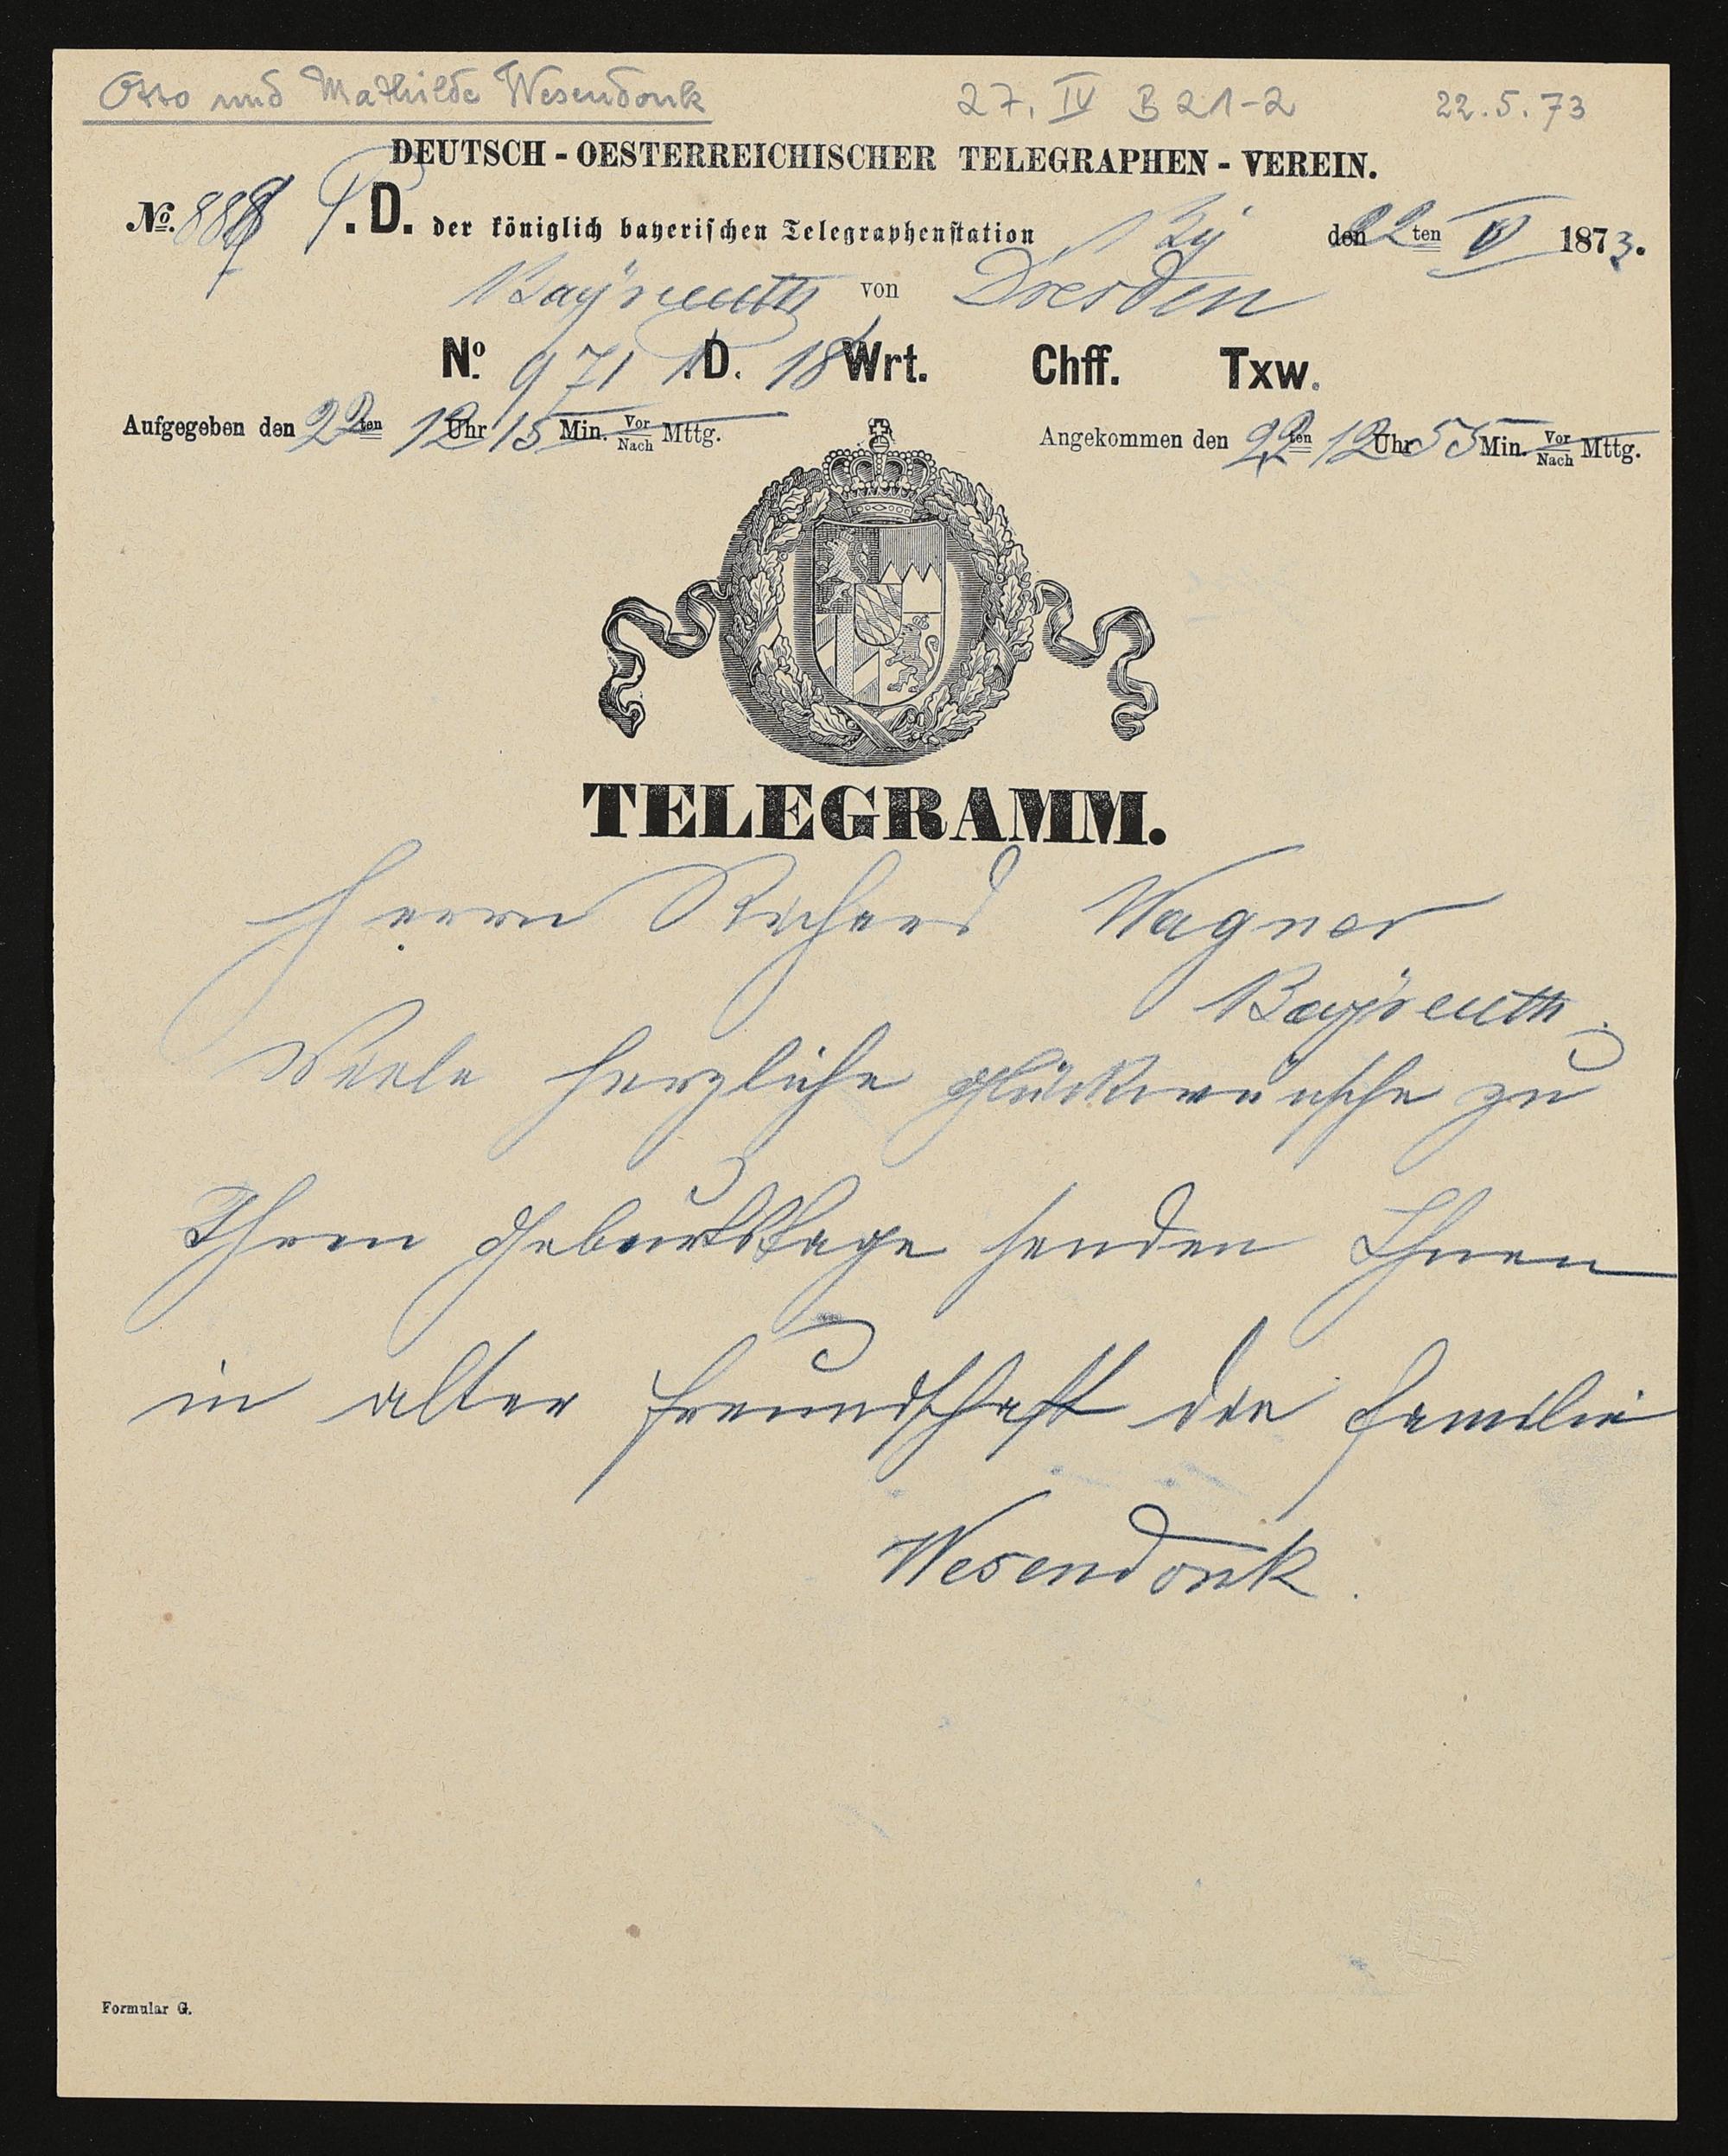 Otto und Mathilde Wesendonk 27. IV B 21-2 22.5.73
DEUTSCH - OESTERREICHISCHER TELEGRAPHEN - VEREIN.
No. 888 T. D. der königlich bayerischen Telegraphenstation By den 22ten V 1873.
Bayreuth von Dresden
No. 971 T.D. 18 Wrt. Chff. Txw.
Aufgegeben den 22ten 12 Uhr 15 Min. Vor/Nach Mttg. Angekommen den 22ten 12 Uhr 55 Min. Vor/Nach Mttg.
TELEGRAMM.
Herrn Richard Wagner
Bayreuth.
Viele herzliche Glückwünsche zu
Ihrem Geburtstage senden Ihnen
in alter Freundschaft die Familie
Wesendonk.
Formular G.